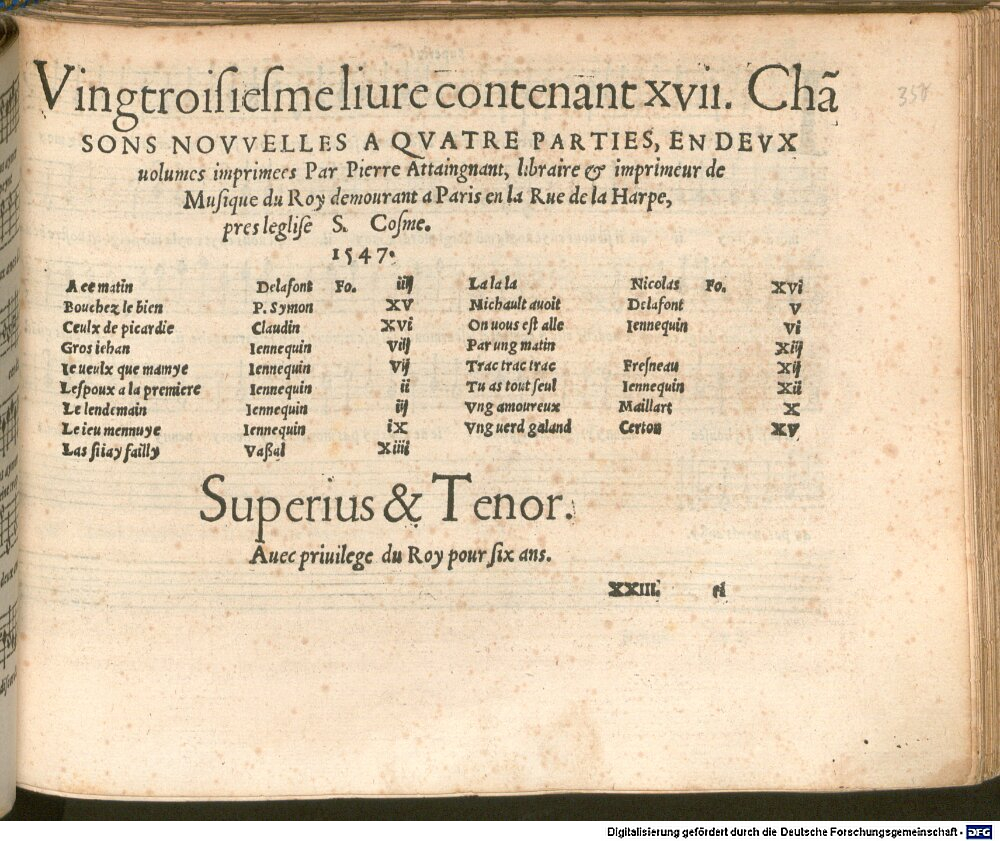 Vingtroiſieſme liure contenant xvii. Chã
SONS NOVVELLES A QVATRE PARTIES, EN DEVX
uolumes imprimees Par Pierre Attaingnant, libraire & imprimeur de
Muſique du Roy demourant a Paris en la Rue de la Harpe,
pres legliſe S. Coſme.
1547.
358
A ce matin Delafont Fo. iiij
Bouchez le bien P. Symon XV
Ceulx de picardie Claudin XVi
Gros iehan Iennequin Viij
Ie ueulx que mamye Iennequin Vij
Leſpoux a la premiere Iennequin ii
Le lendemain Iennequin iij
Le ieu mennuye Iennequin iX
Las ſi iay failly Vaßal Xiiii
La la la Nicolas Fo. XVi
Michault auoit Delafont V
On uous eſt alle Iennequin Vi
Par ung matin Xiij
Trac trac trac Freſneau Xij
Tu as tout ſeul Iennequin Xii
Vng amoureux Maillart X
Vng uerd galand Certon XV
Superius & Tenor.
Auec priuilege du Roy pour ſix ans.
XXIII.
Digitalisierung gefördert durch die Deutsche Forschungsgemeinschaft - DFG